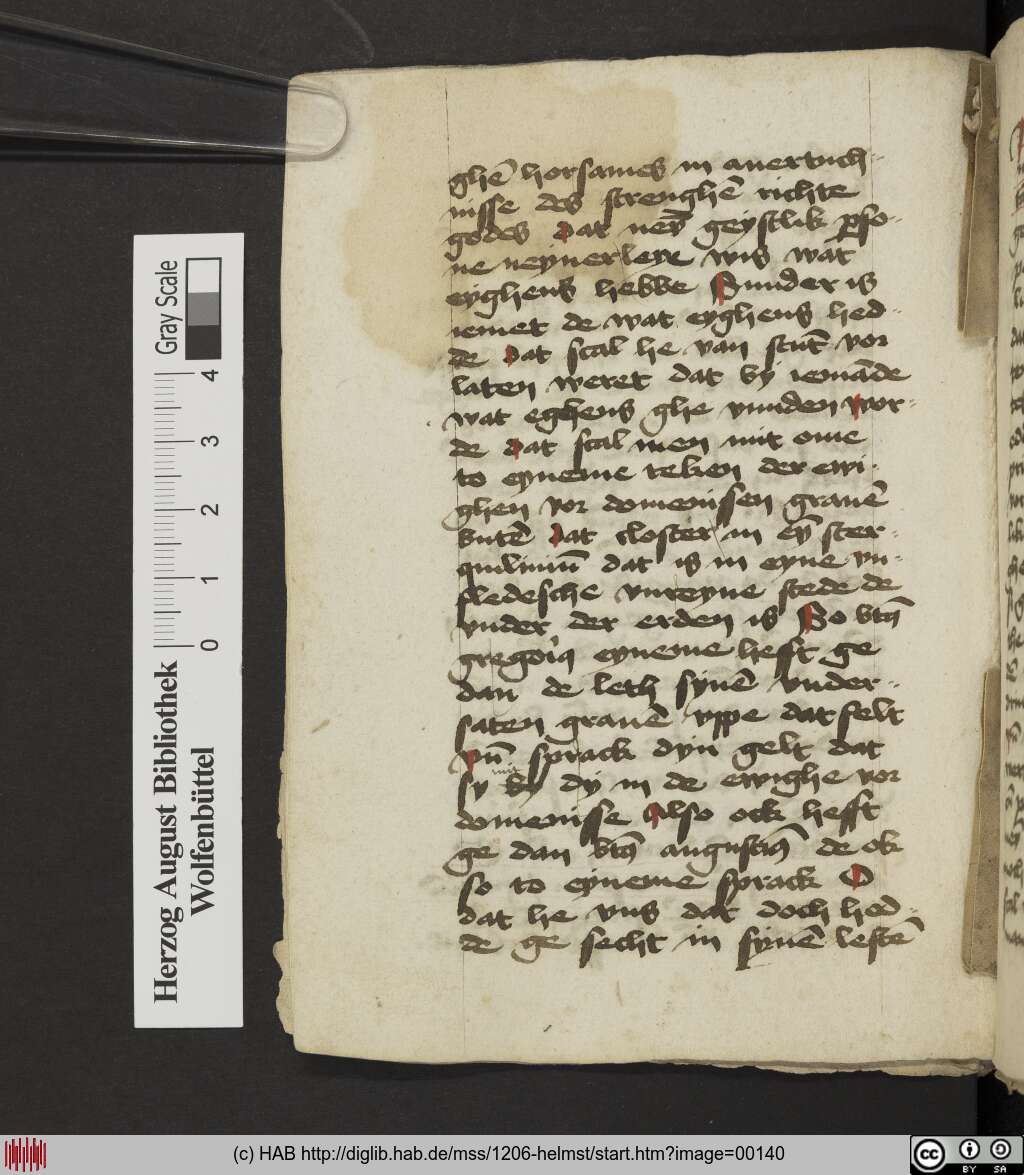 ghē horsames in auertuch-
nisse des strenghē richte
godes dat neȳ geystlik pso-
ne neynerleye wis wat
eyghens hebbe Sunder is
iemet de wat eyghens hed-
de dat scal he van stūt vor
laten weret dat by iemāde
wat eghens ghe vunden wor-
de dat scal men mit ome
to eyneme teken der ewi-
ghen vor domenissen grauē
butē dat closter in eȳ ster-
quiliniū dat is in eyne vn-
fledesche vnreyne stede de
vnder der erden is So btꝰ
gregoriꝰ eyneme hefft ge
dan de leth synē vnder-
saten grauē vppe dat felt
vn̄ sprack dyn gelt dat
sy mit dy in de ewighe vor
domenisse Also ock hefft
ge dan btꝰ augustīꝰ de ok
so to eyneme sprack O
dat he vns dat doch hed-
de ge secht in synē lestē
Herzog August Bibliothek
Wolfenbüttel
0 1 2 3 4
Gray Scale
(c) HAB http://diglib.hab.de/mss/1206-helmst/start.htm?image=00140
cc BY SA